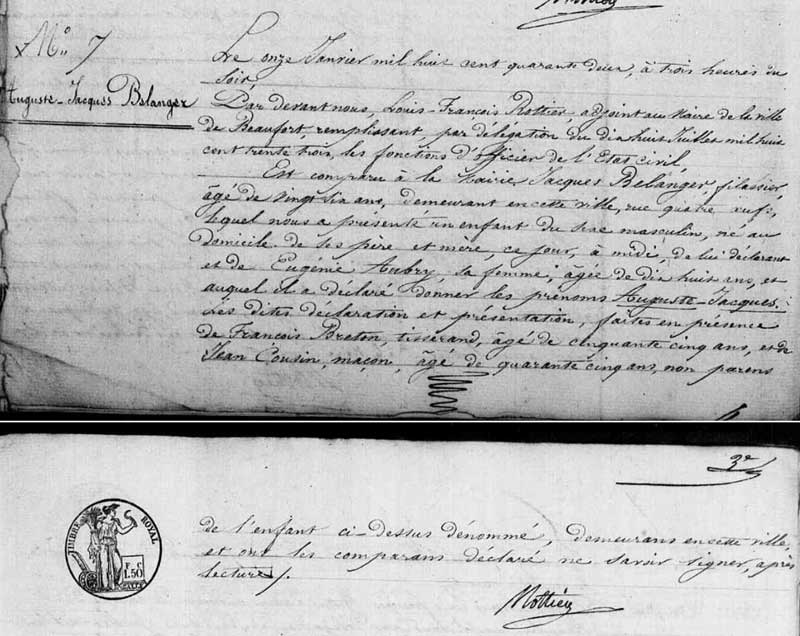 N° 7
Auguste-Jacques Belanger
Le onze Janvier mil huit cent quarante deux, à trois heures du
soir
Par devant nous, Louis-François Rottier adjoint au Maire de la ville
de Beaufort, remplissant, par délégation du dix huit Juillet mil huit
cent trente trois, les fonctions d'officier de l'Etat civil
Est comparu à la Mairie Jacques Belanger, filassier,
âgé de vingt six ans, demeurant en cette ville, rue quatre œufs,
lequel nous a présenté un enfant du sexe masculin, né au
domicile de ses père et mère, ce jour, à midi, de lui déclarant
et de Eugénie Aubry, sa femme, âgée de dix huit ans, et
auquel il a déclaré donner les prénoms Auguste-Jacques.
Les dites déclaration et présentation, faites en présence
de François Breton, tisserand, âgé de cinquante cinq ans, et de
Jean Cousin, maçon, âgé de quarante cinq ans, non parens
3e
TIMBRE ROYAL
F. C.
1.50
de l'enfant ci-dessus dénommé, demeurans en cette ville,
et ont les comparans déclaré ne savoir signer, après
lecture /.
Rottier